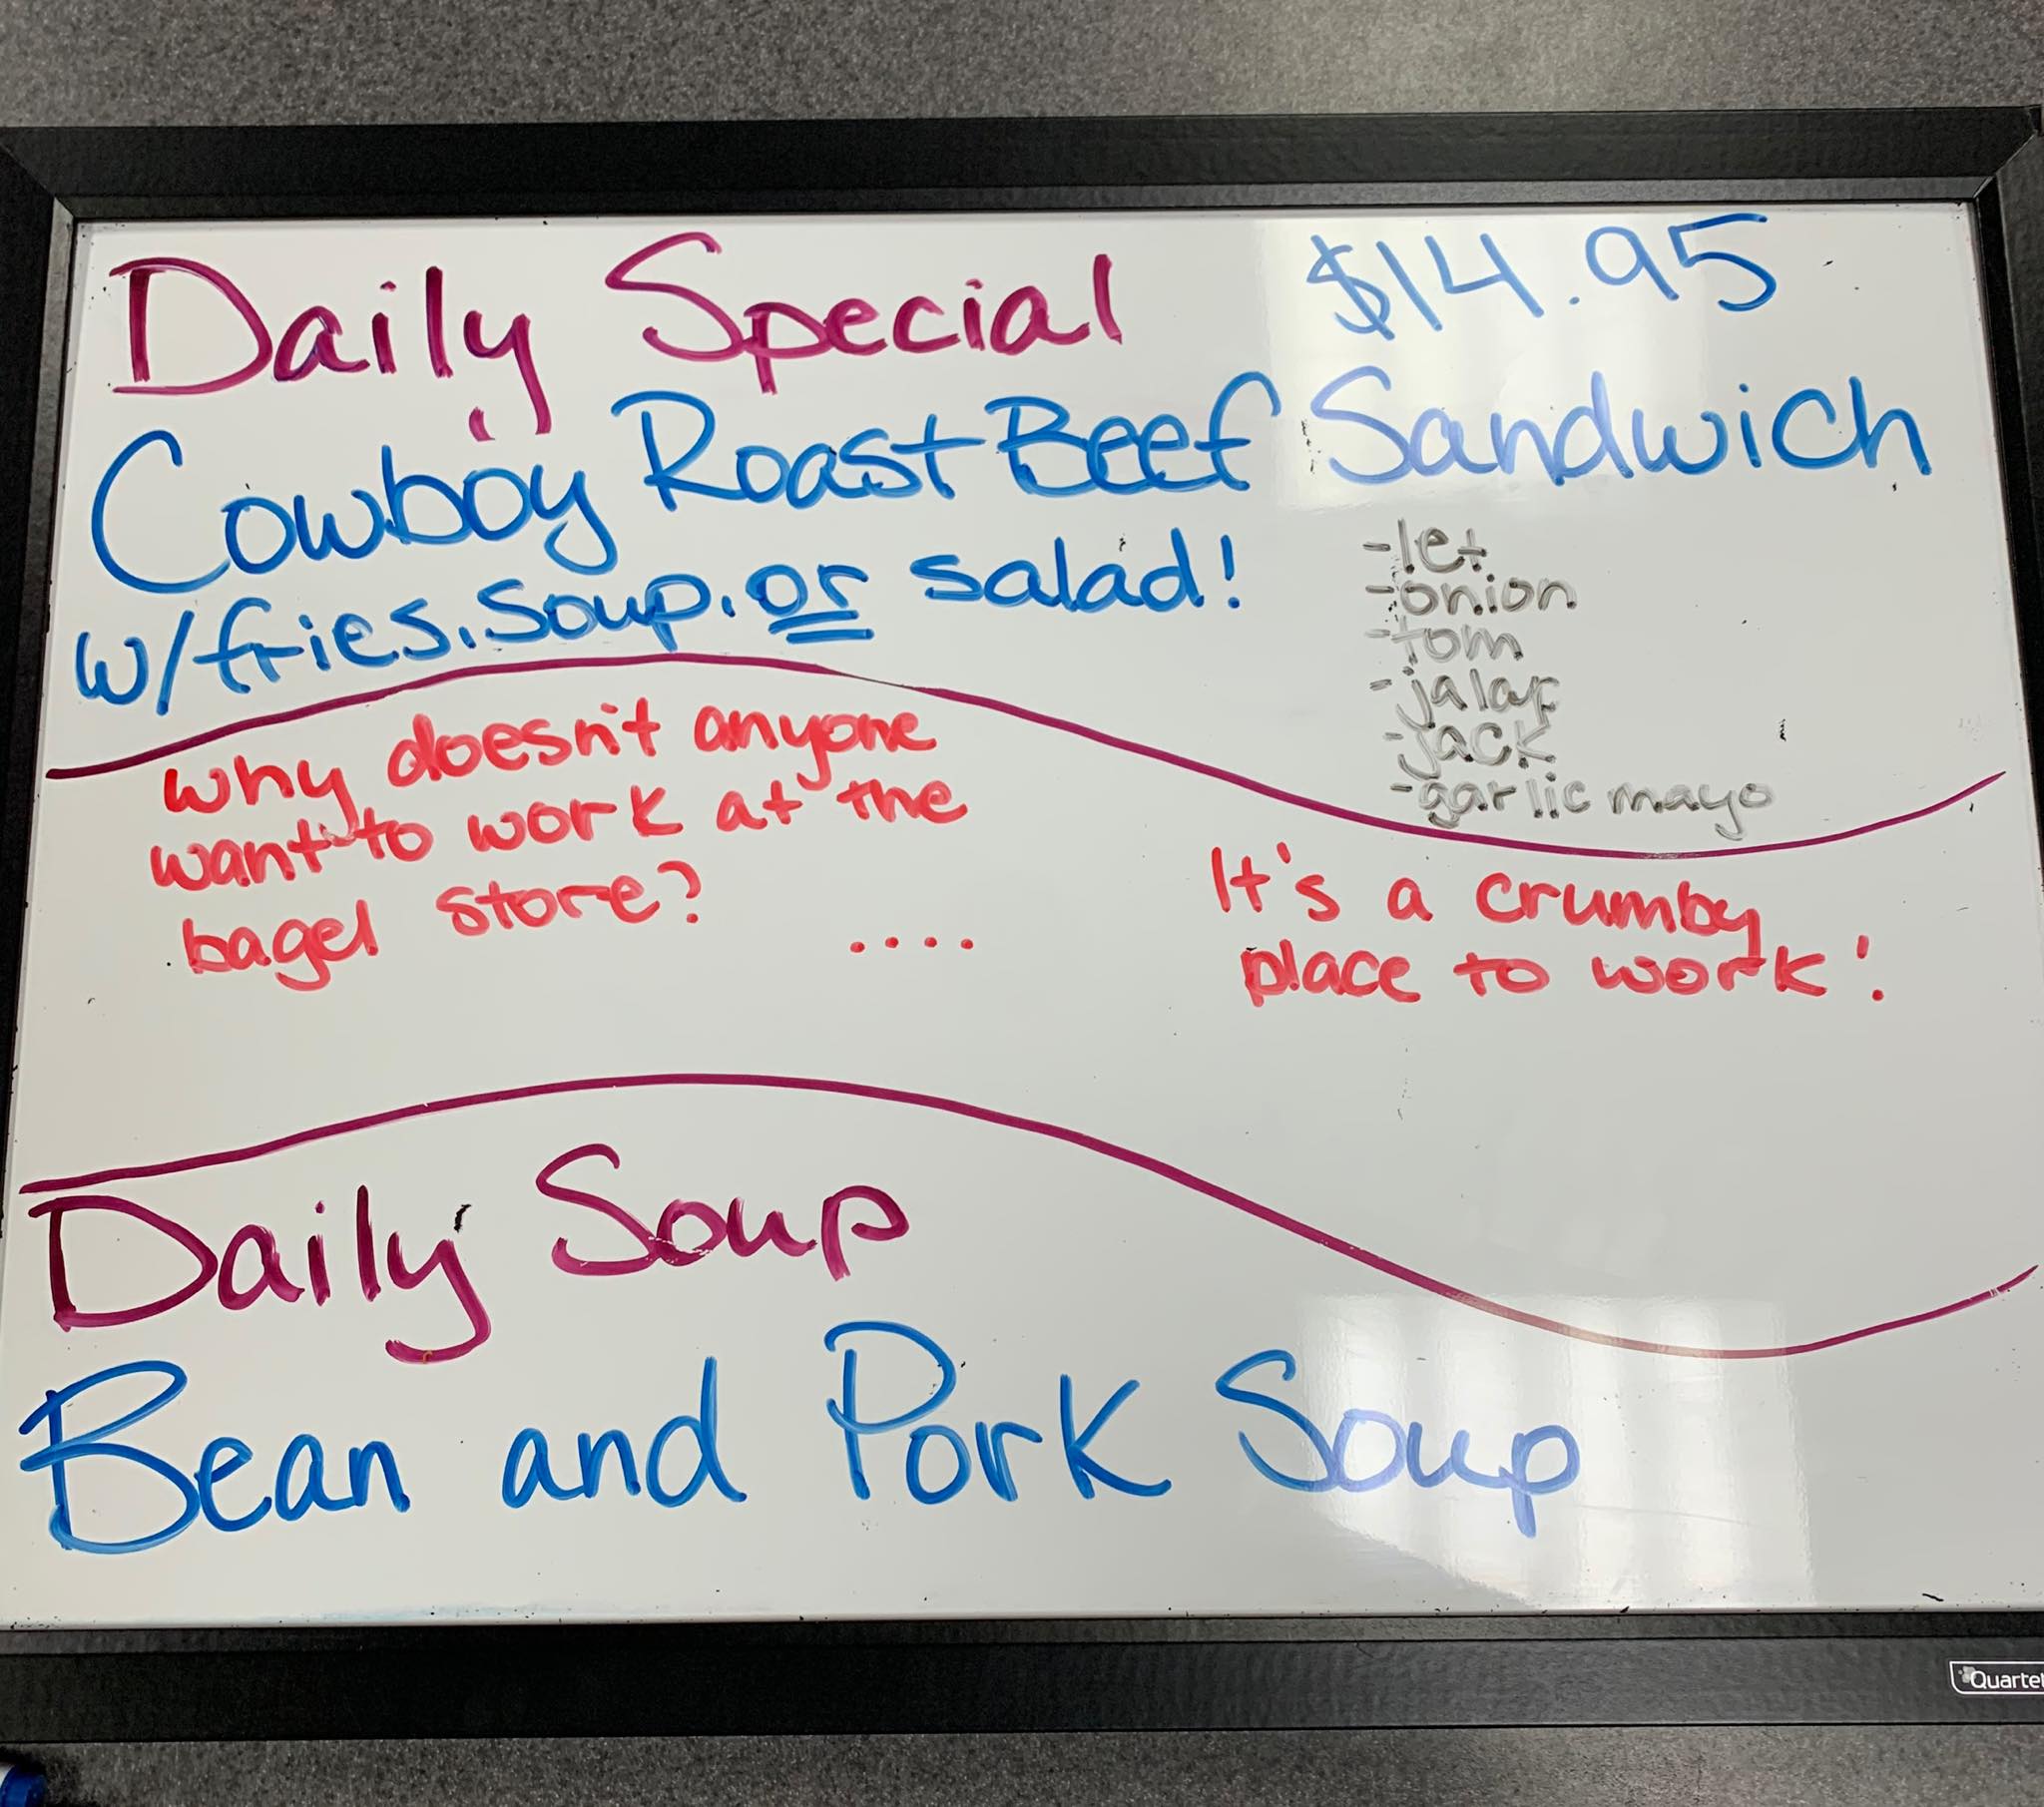 Daily Special $14.95
Cowboy Roast Beef Sandwich
w/fries.soup.or salad!
-let
-onion
-tom
-jalap
-jack
-garlic mayo
why doesn't anyone
want to work at the
bagel store? ....
It's a crumby
place to work!
Daily Soup
Bean and Pork Soup
Quartet